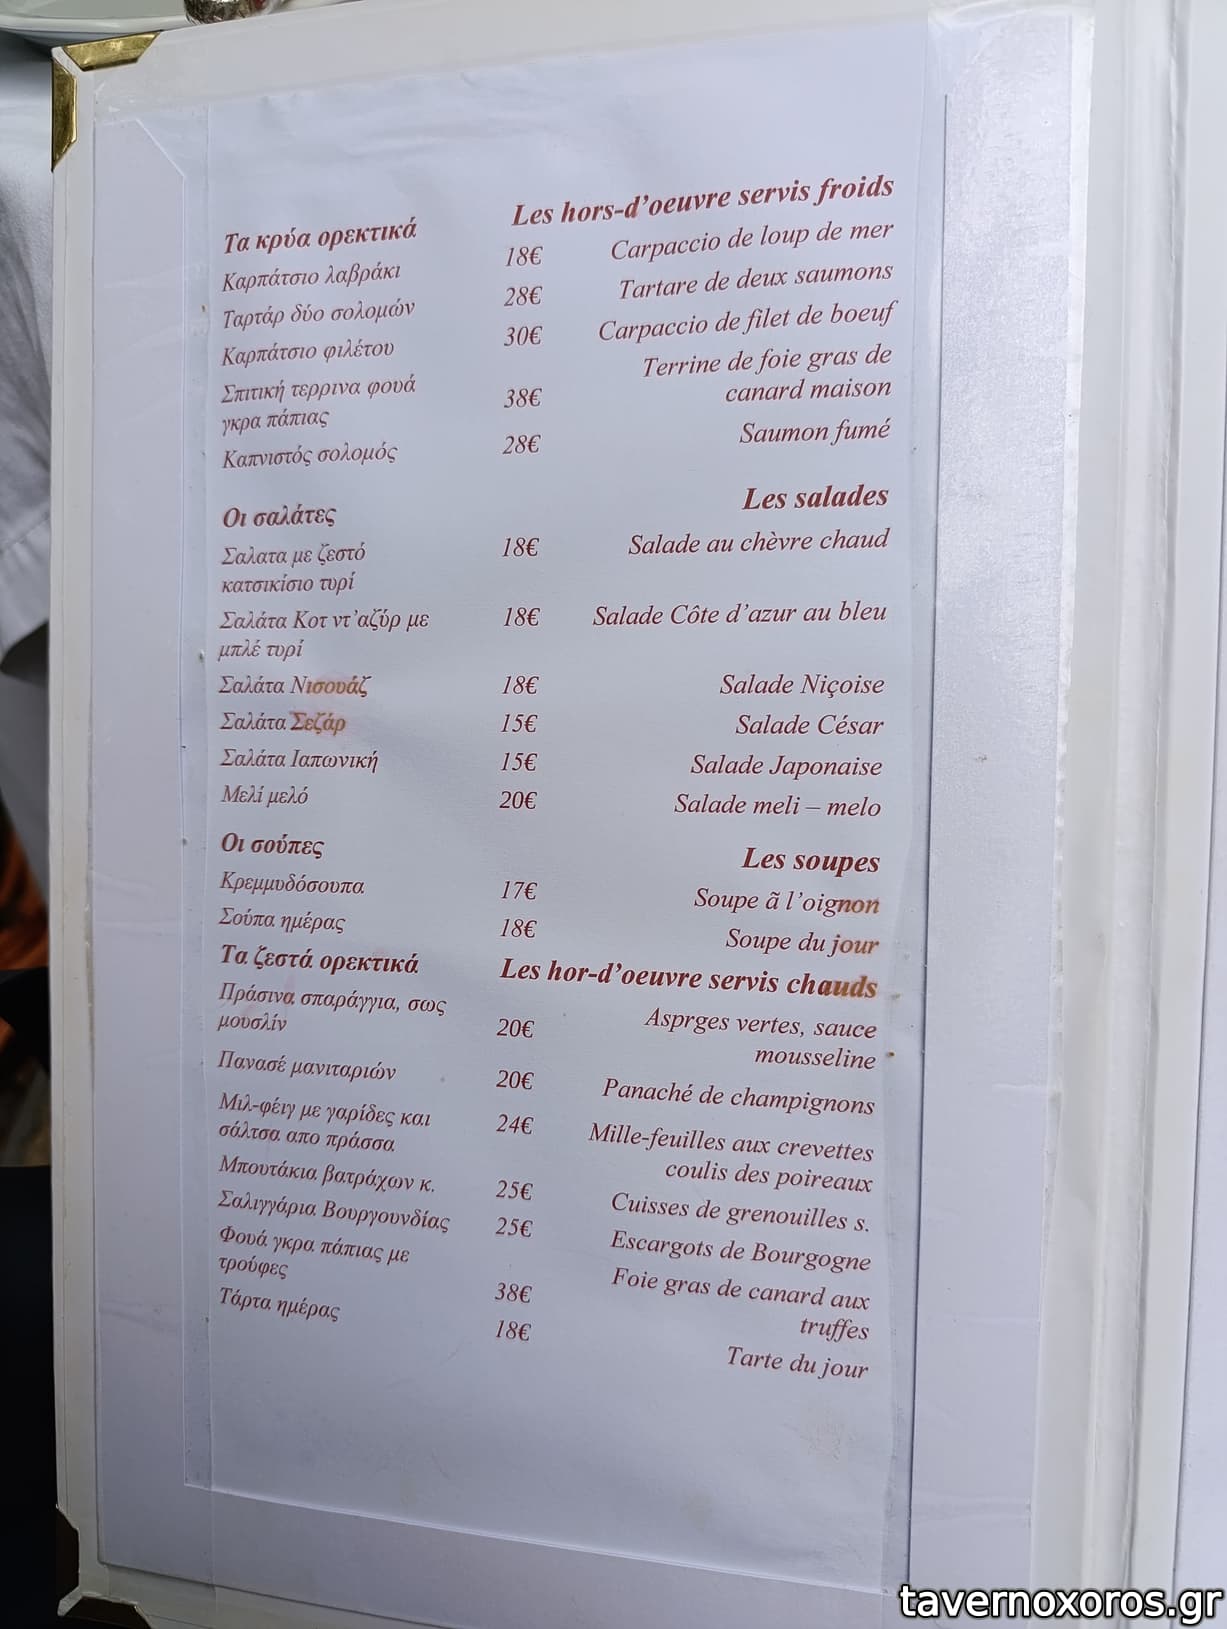 Τα κρύα ορεκτικά Les hors-d’oeuvre servis froids
Καρπάτσιο λαβράκι 18€ Carpaccio de loup de mer
Ταρτάρ δύο σολομών 28€ Tartare de deux saumons
Καρπάτσιο φιλέτου 30€ Carpaccio de filet de boeuf
Σπιτική τερρινα φουά Terrine de foie gras de
γκρα πάπιας 38€ canard maison
Καπνιστός σολομός 28€ Saumon fumé
Οι σαλάτες Les salades
Σαλατα με ζεστό 18€ Salade au chèvre chaud
κατσικίσιο τυρί
Σαλάτα Κοτ ντ’αζύρ με 18€ Salade Côte d’azur au bleu
μπλέ τυρί
Σαλάτα Νισουάζ 18€ Salade Niçoise
Σαλάτα Σεζάρ 15€ Salade César
Σαλάτα Ιαπωνική 15€ Salade Japonaise
Μελί μελό 20€ Salade meli – melo
Οι σούπες Les soupes
Κρεμμυδόσουπα 17€ Soupe ã l’oignon
Σούπα ημέρας 18€ Soupe du jour
Τα ζεστά ορεκτικά Les hor-d’oeuvre servis chauds
Πράσινα σπαράγγια, σως Asprges vertes, sauce
μουσλίν 20€ mousseline
Πανασέ μανιταριών 20€ Panaché de champignons
Μιλ-φέιγ με γαρίδες και 24€ Mille-feuilles aux crevettes
σάλτσα απο πράσσα coulis des poireaux
Μπουτάκια βατράχων κ. 25€ Cuisses de grenouilles s.
Σαλιγγάρια Βουργουνδίας 25€ Escargots de Bourgogne
Φουά γκρα πάπιας με Foie gras de canard aux
τρούφες 38€ truffes
Τάρτα ημέρας 18€ Tarte du jour
tavernoxoros.gr